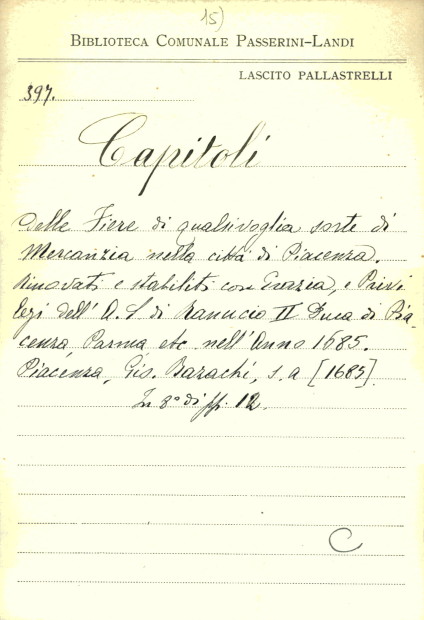 15)
BIBLIOTECA COMUNALE PASSERINI-LANDI
LASCITO PALLASTRELLI
397.
Capitoli
Delle Fiere di qualsivoglia sorte di
Mercanzia nella città di Piacenza.
Rinovati e stabiliti con Grazia, e Privi
legi dell' A. S. di Ranucio II Duca di Pia-
cenza, Parma etc. nell'Anno 1685.
Piacenza, Gio. Bazachi, s. a [1685].
In 8° di pp. 12.
C